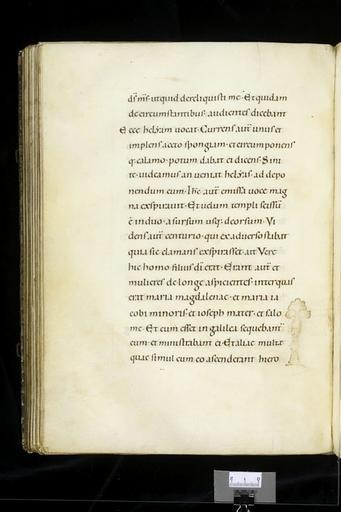 ds ms utquid dereliquisti me · Et quidam
de circumstantibus audientes dicebant
Ecce heliam vocat · Currens aut unus et
implens aceto spongiam · et circumponens
q; calamo · potum dabat ei dicens Sini
te · videamus an veniat helias ad depo
nendum eum · Ihc aut emissa voce mag
na expiravit · Et velum templi scissu
e in duo · a sursum usq; deorsum · Vi
dens aut centurio · qui ex adverso stabat
quia sic clamans expirasset · ait Vere
hic homo filius di erat · Erant aut et
mulieres de longe aspicientes · inter quas
erat maria magdalenae · et maria ia
cobi minoris et ioseph mater · et salo
me · Et cum esset in galilea sequebant
eum · et ministrabant ei · Et aliae multe
quae simul cum eo ascenderant hiero